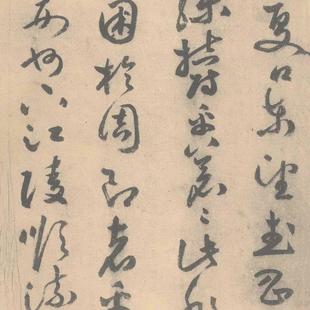 夏口東望武昌
繆鬱乎蒼〻此非
困於周郎者乎
荊州下江陵順流